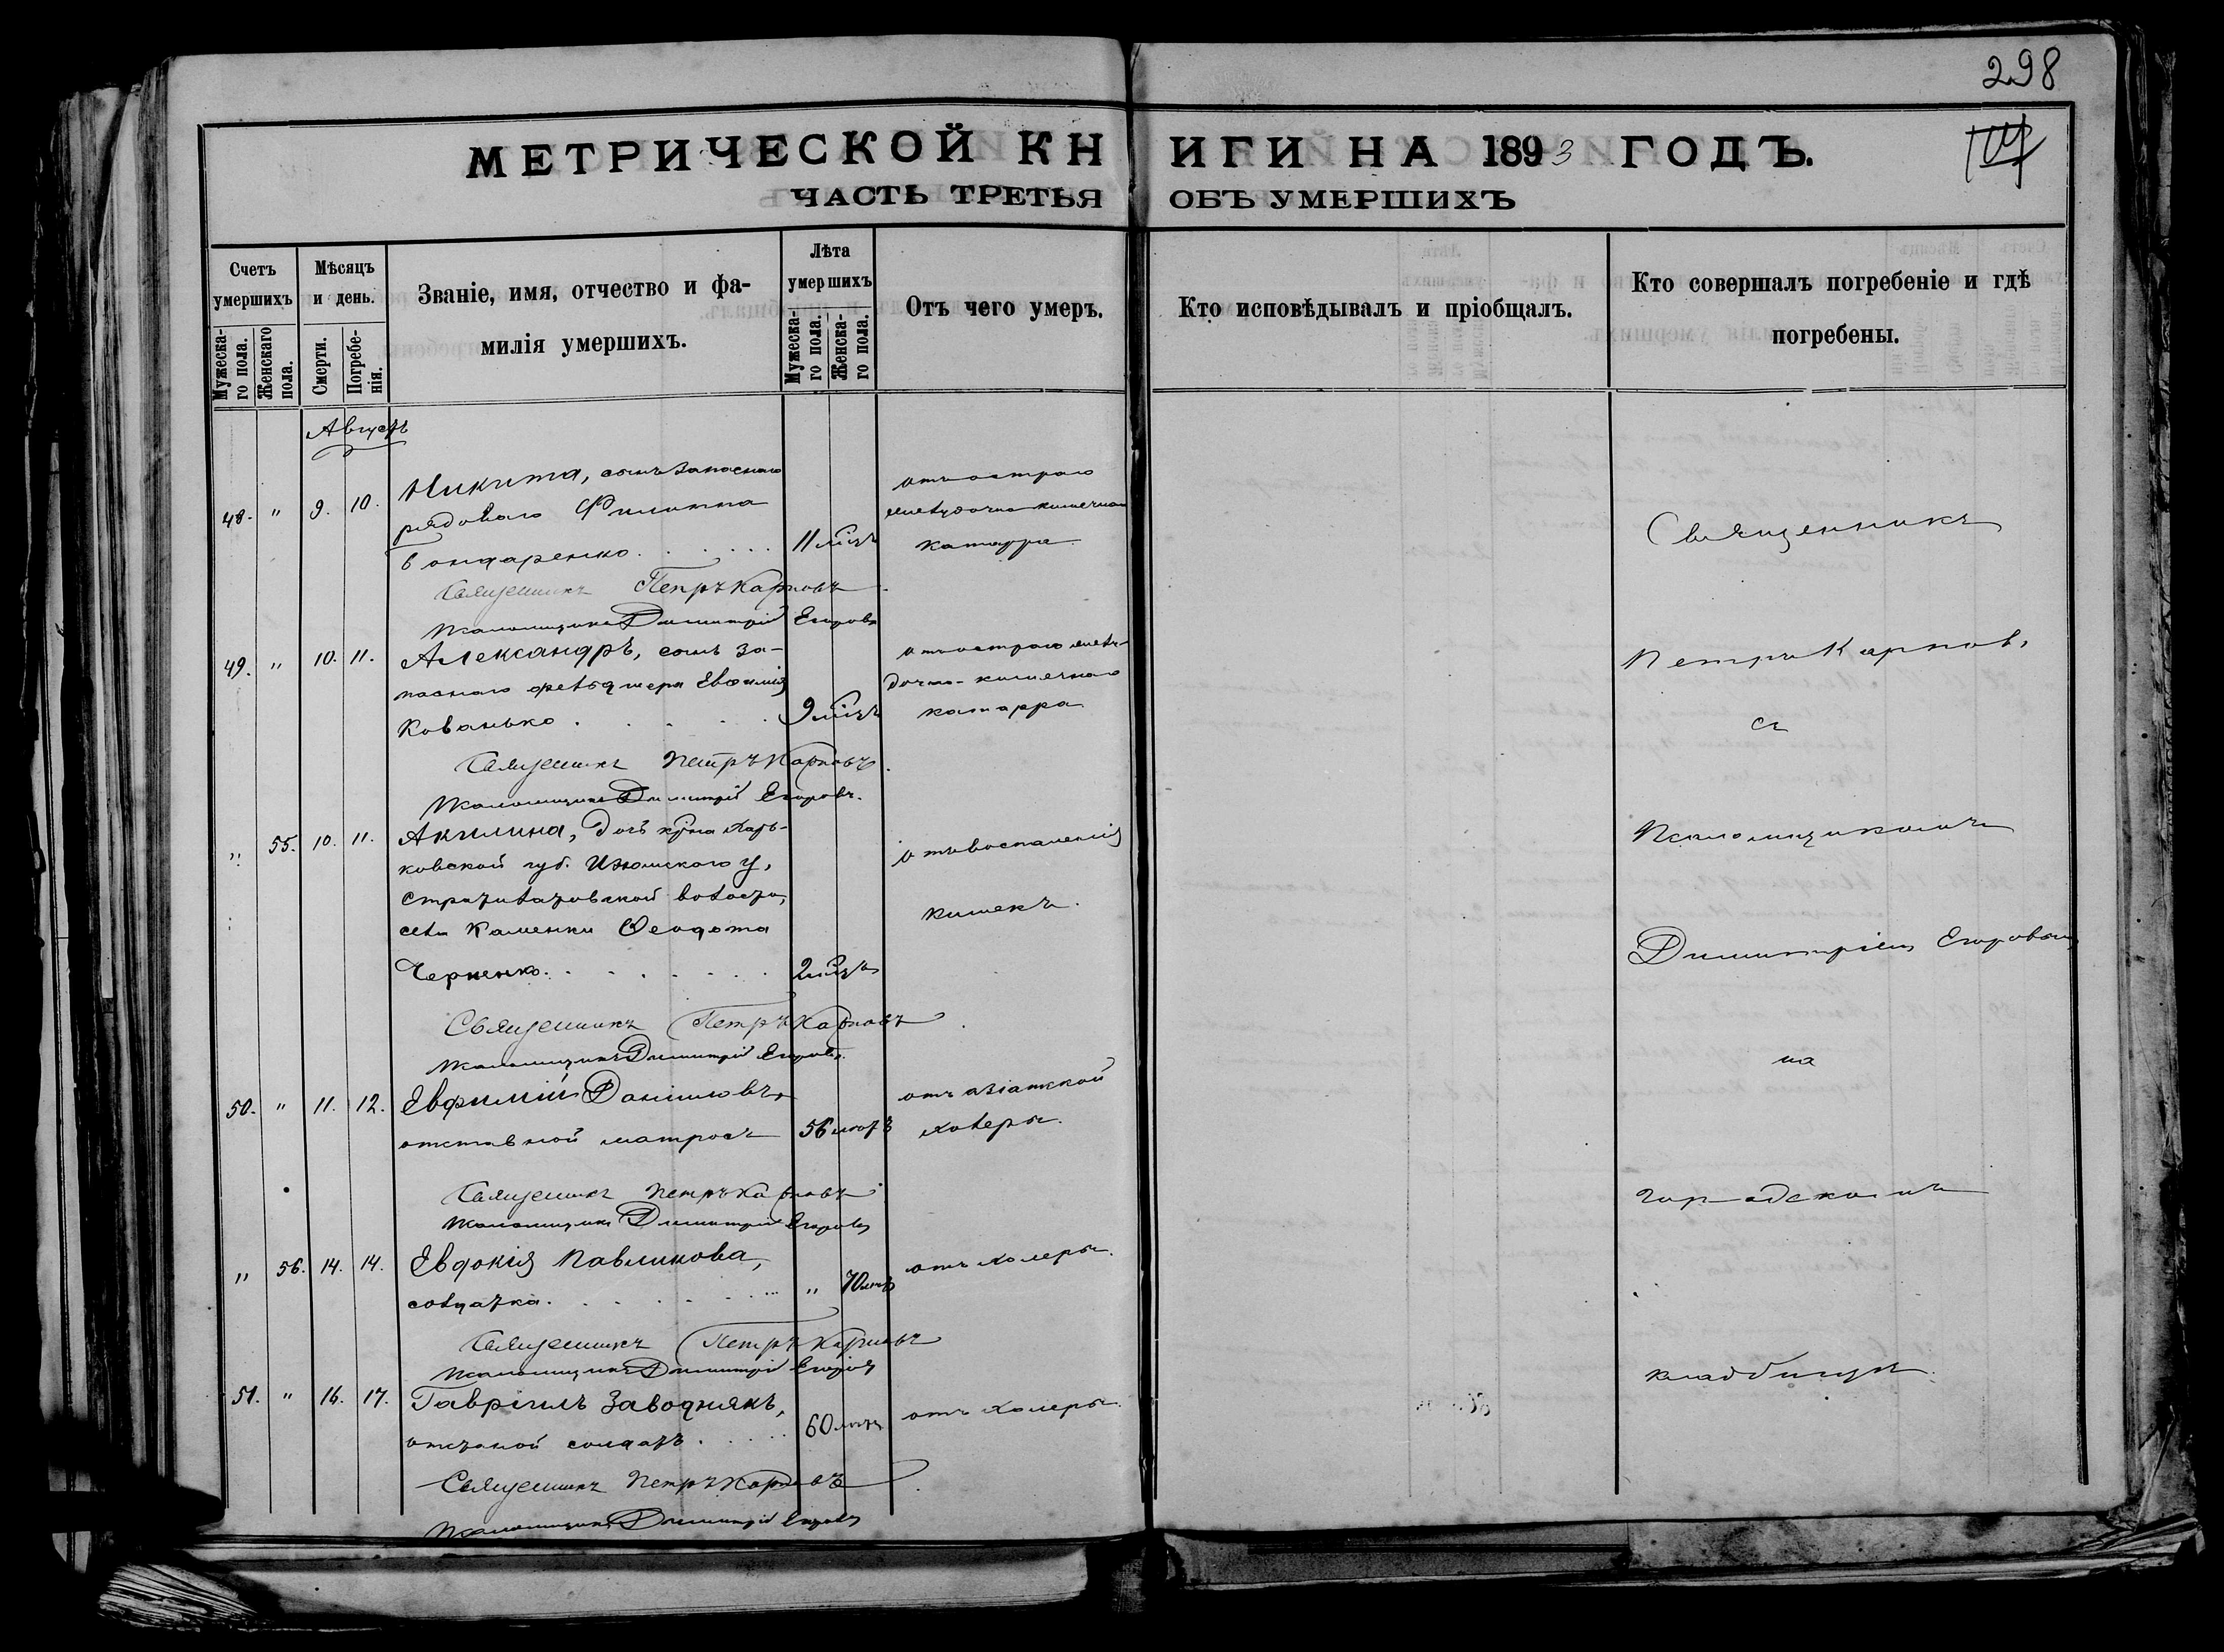 298
МЕТРИЧЕСКОЙ КНИГИ НА 1893 ГОДЪ.
ЧАСТЬ ТРЕТЬЯ ОБЪ УМЕРШИХЪ
Счетъ умершихъ
Мужескаго пола.
Женскаго пола.
Мѣсяцъ и день.
Смерти.
Погребенія.
Званіе, имя, отчество и фамилія умершихъ.
Лѣта умершихъ
Мужескаго пола.
Женскаго пола.
Отъ чего умеръ.
Кто исповѣдывалъ и пріобщалъ.
Кто совершалъ погребеніе и гдѣ погребены.
Августъ
48. " 9. 10. Никита, сынъ запаснаго
рядоваго Филиппа
Бондаренко. 11 мѣсц.
отъ остраго
желудочно-кишечнаго
катарра.
Священникъ Петръ Карповъ
Псаломщикъ Димитрій Егоровъ
49. " 10. 11. Александръ, сынъ за-
паснаго фельдшера Евфимія
Кованько. 9 мѣсц.
отъ остраго желу-
дочно-кишечнаго
катарра
Священникъ Петръ Карповъ
Псаломщикъ Димитрій Егоровъ.
" 55. 10. 11. Акилина, дочь кр-на Харь-
ковской губ. Изюмскаго у,
волости,
села Каменки Феодота
Черненко. 2 мѣсц.
отъ воспаленія
кишекъ.
Священникъ Петръ Карповъ
Псаломщикъ Димитрій Егоровъ.
50. " 11. 12. Евфимій Даниловъ,
отставной матросъ 56 лѣтъ
отъ азіатской
холеры.
Священникъ Петръ Карповъ
Псаломщикъ Димитрій Егоровъ
" 56. 14. 14. Евдокія Павликова,
солдатка. " 70 лѣтъ
отъ холеры.
Священникъ Петръ Карповъ
Псаломщикъ Димитрій Егоровъ
51. " 16. 17. Гавріилъ Заводнякъ,
отставной солдатъ. 60 лѣтъ
отъ холеры.
Священникъ Петръ Карповъ
Псаломщикъ Димитрій Егоровъ
Священникъ
Петръ Карповъ,
съ
Псаломщикомъ
Димитріемъ Егоровымъ
на
городскомъ
кладбищѣ.